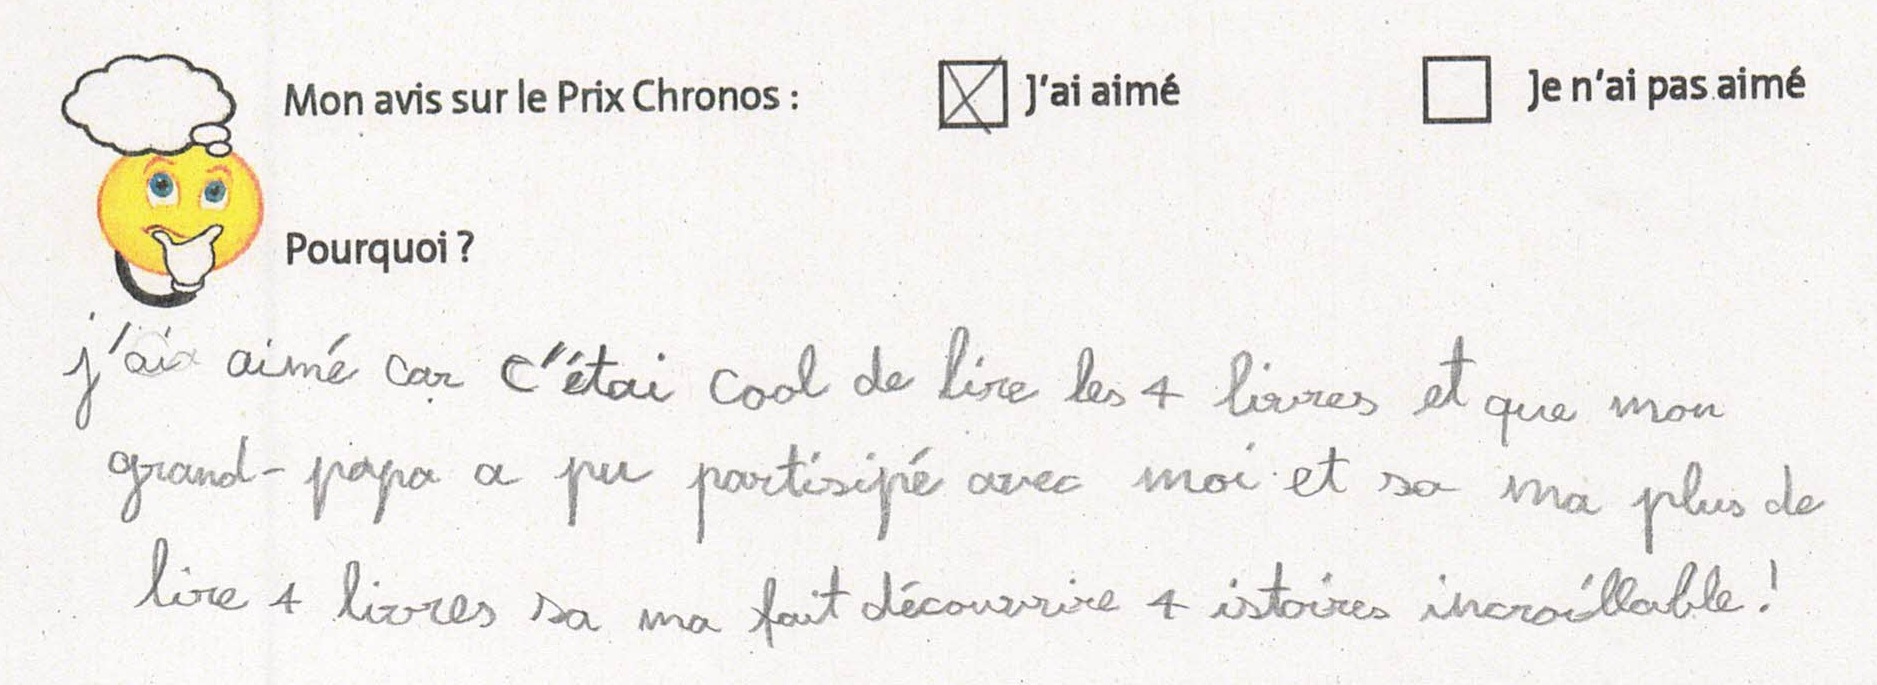 Mon avis sur le Prix Chronos : ☒ J'ai aimé ☐ Je n'ai pas aimé
Pourquoi ?
j'ai aimé car c'étai cool de lire les 4 livres et que mon
grand-papa a pu partisipé avec moi et sa ma plus de
lire 4 livres sa ma fait découvrire 4 istoires incroillable !